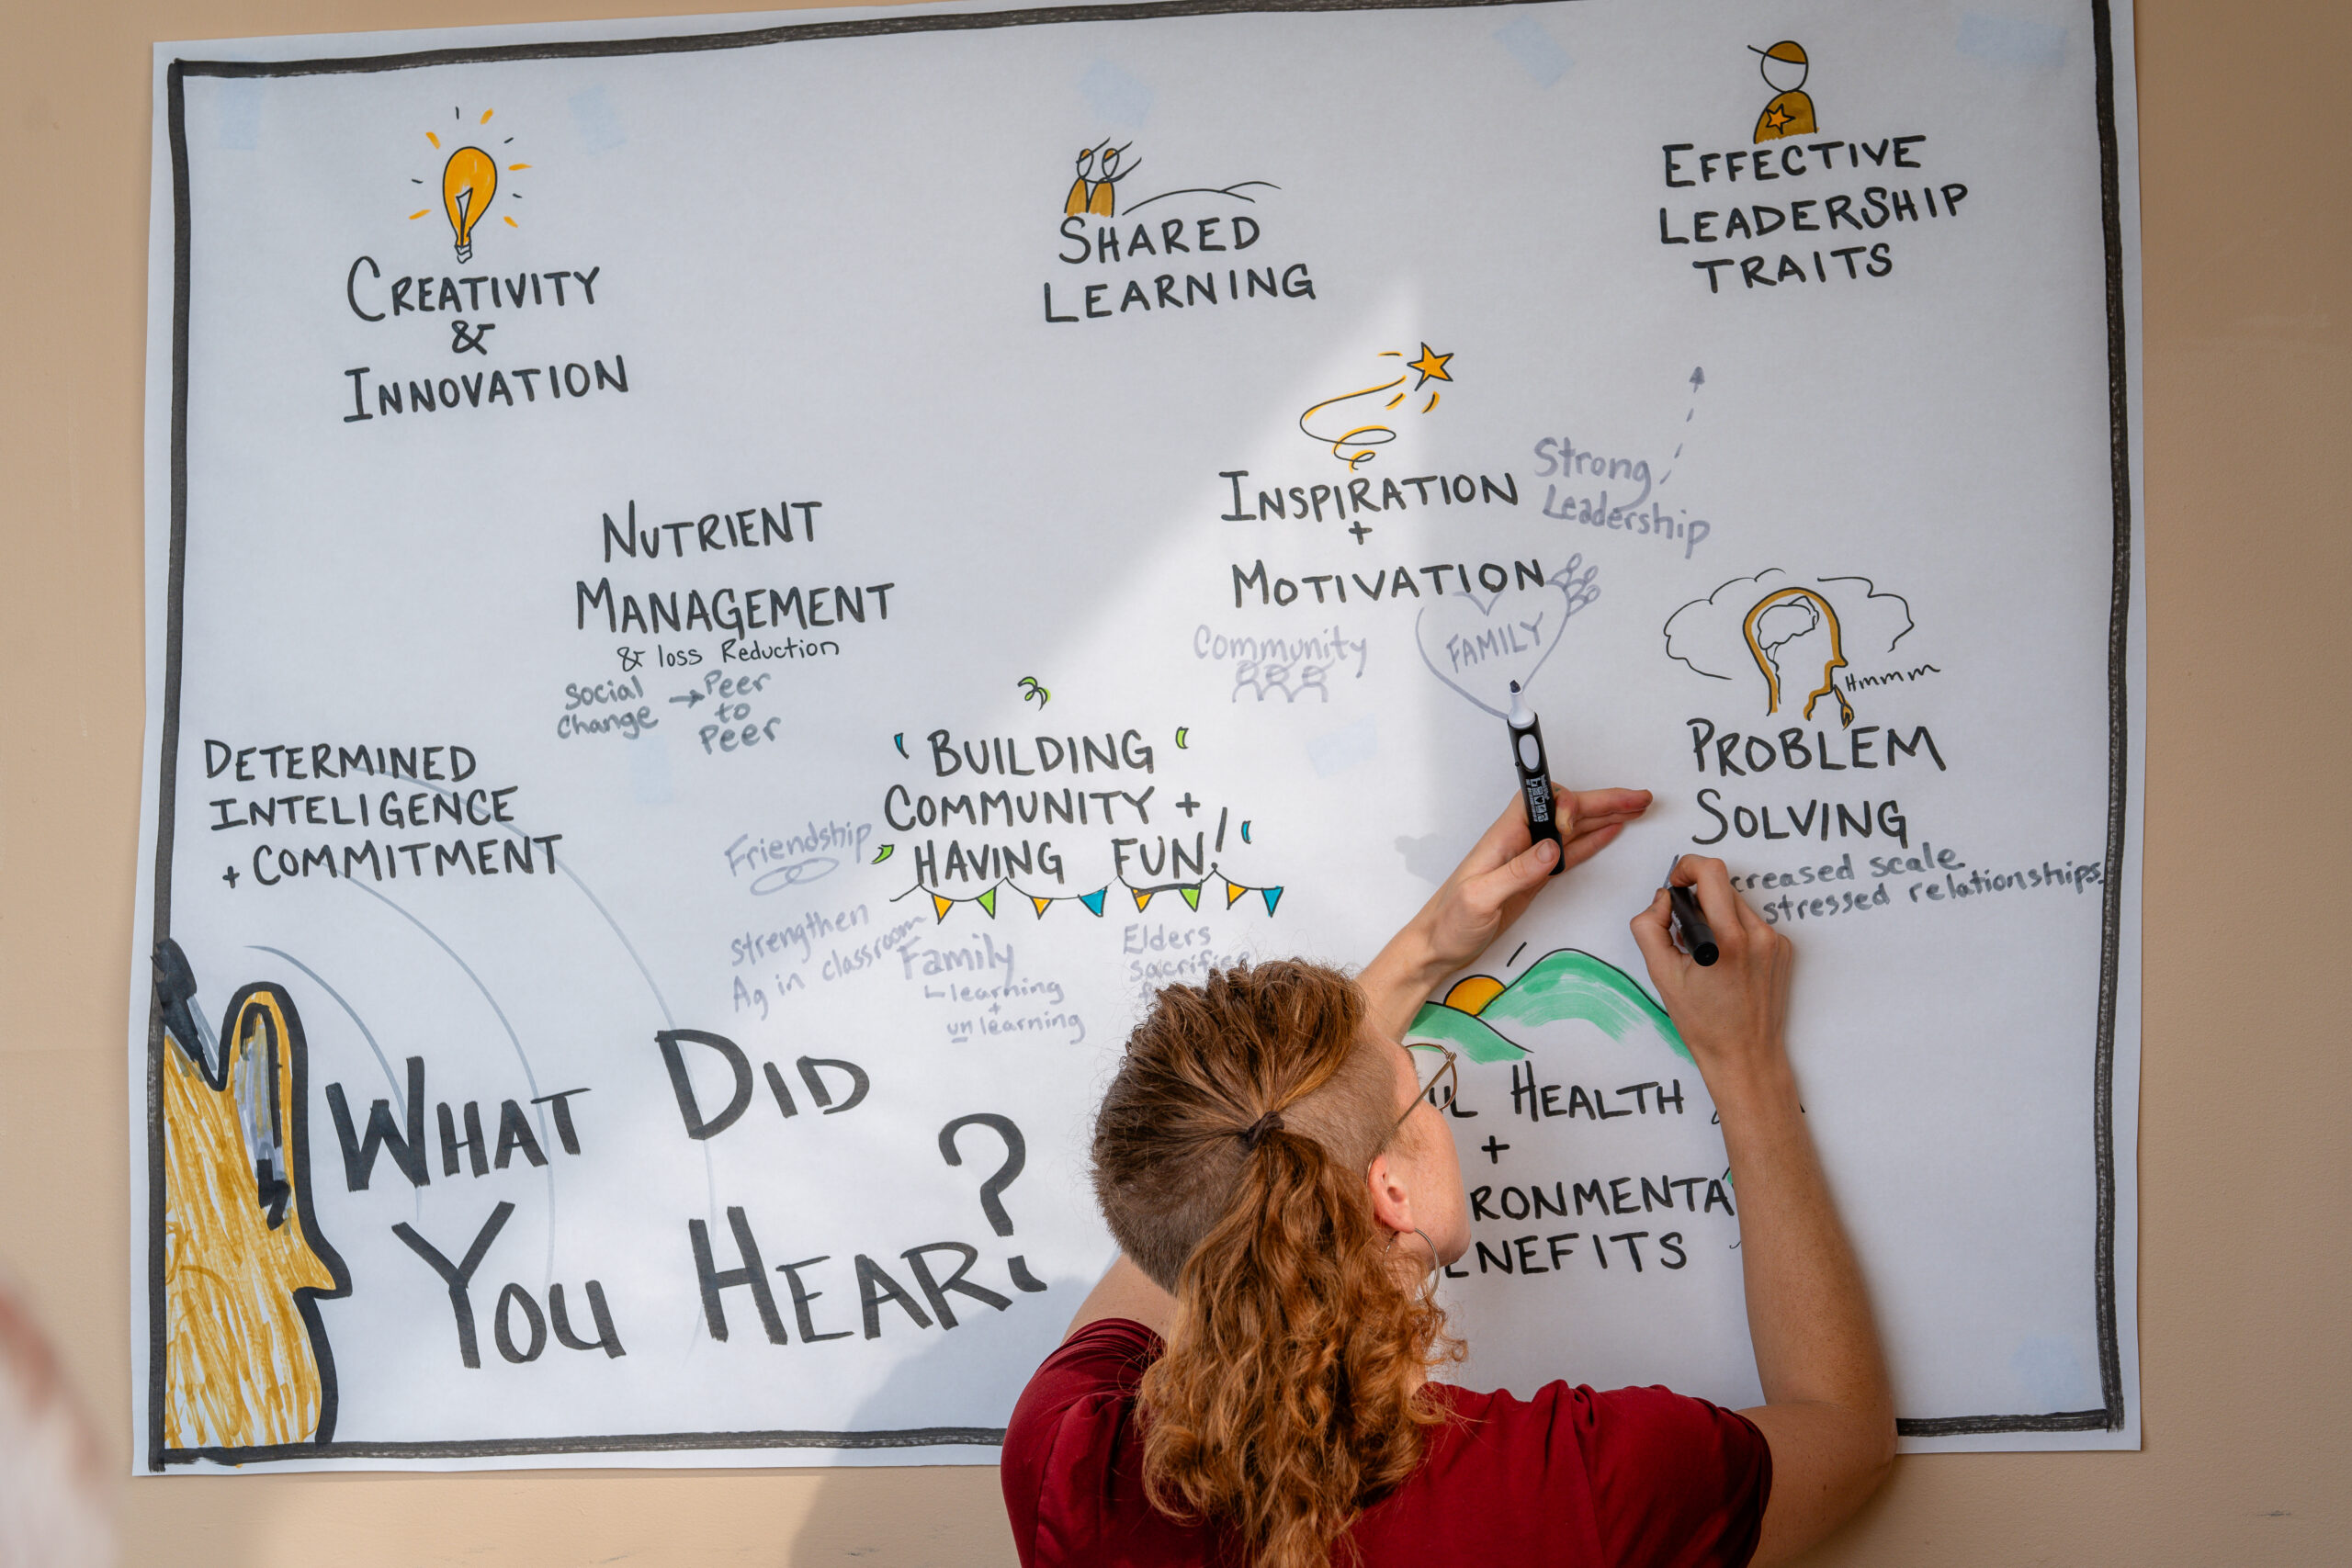 CREATIVITY
&
INNOVATION
SHARED
LEARNING
EFFECTIVE
LEADERSHIP
TRAITS
INSPIRATION
+
MOTIVATION
Strong
Leadership
Community
FAMILY
NUTRIENT
MANAGEMENT
& loss Reduction
Social
Change → Peer
to
Peer
Hmmm
PROBLEM
SOLVING
creased scale
stressed relationships.
DETERMINED
INTELIGENCE
+ COMMITMENT
BUILDING
COMMUNITY +
HAVING FUN!
Friendship
strengthen
Ag in classroom
Family
learning
+
unlearning
Elders
Sacrifice
HEALTH
+
RONMENTA
NEFITS
WHAT DID
YOU HEAR?